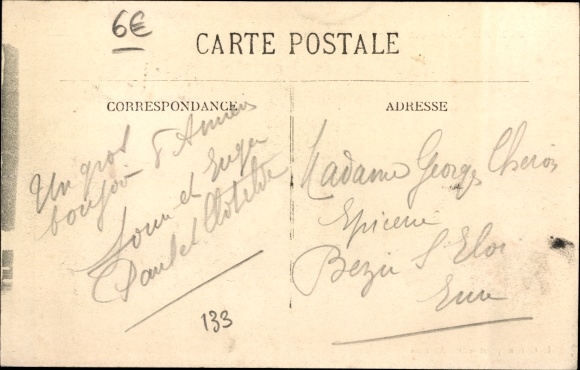 6€
CARTE POSTALE
CORRESPONDANCE
ADRESSE
Un gros
bonjour d'Amiens
et Eugen
Paul et Clotilde
133
Madame Georges Cheron
Epicerie
Bezu St Eloi
Eure